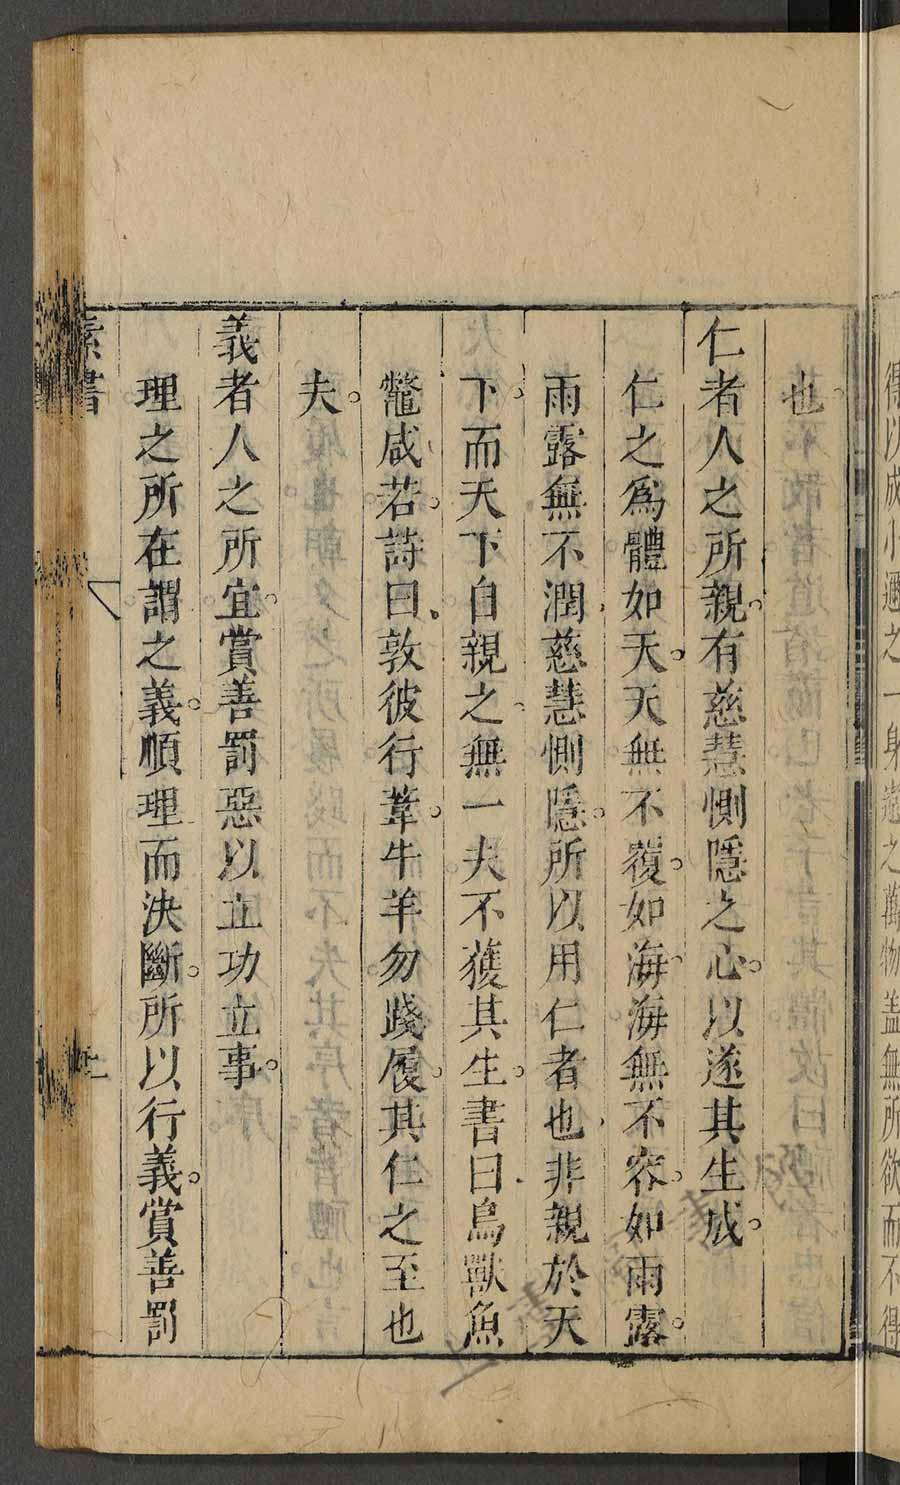 得以成小邇之一身遠之萬物蓋無所欲而不得
也。
仁者人之所親。有慈慧惻隱之心。以遂其生成。
仁之爲體如天。天無不覆。如海。海無不容。如雨露。
雨露無不潤。慈慧惻隱。所以用仁者也。非親於天
下。而天下自親之。無一夫不獲其生。書曰。鳥獸魚
鼈咸若。詩曰。敦彼行葦。牛羊勿踐履。其仁之至也
夫。
義者人之所宜。賞善罰惡以立功立事。
理之所在謂之義。順理而決斷。所以行義。賞善罰
素書